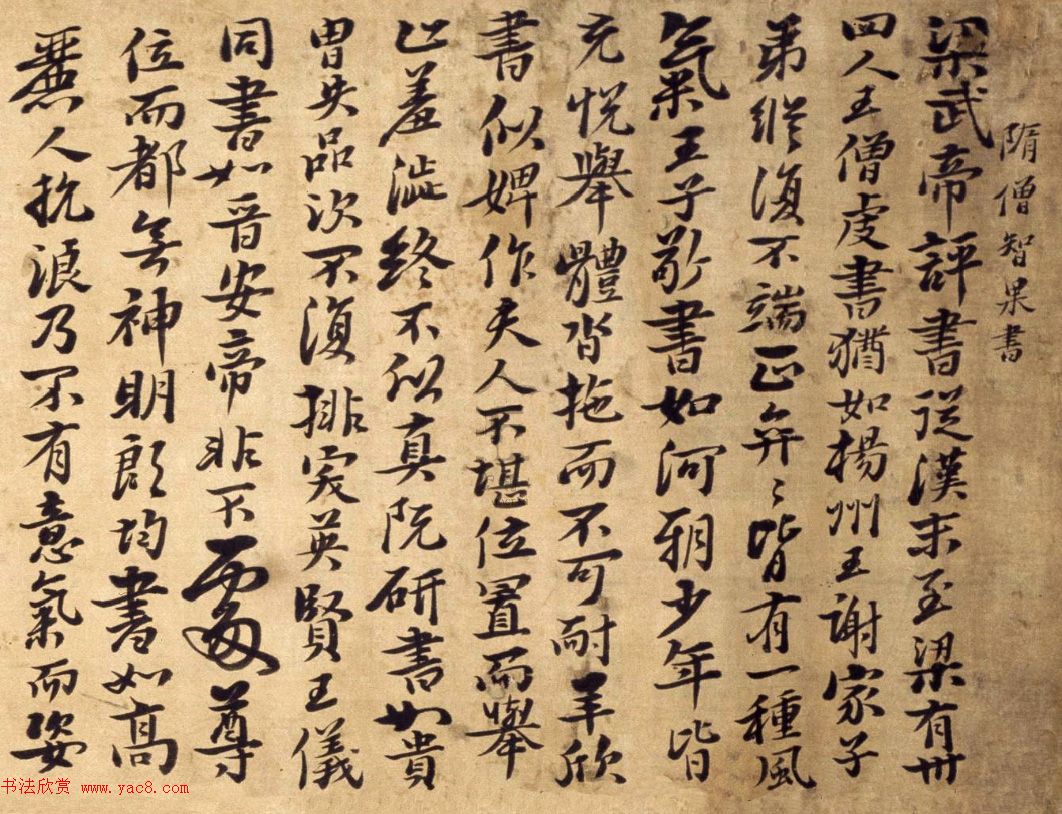 隋僧智果書
梁武帝評書從漢末至梁有卅
四人王僧虔書猶如楊州王謝家子
弟縱復不端正奕〻皆有一種風
氣王子敬書如河朔少年皆
充悅舉體沓拖而不可耐羊欣
書似婢作夫人不堪位置而舉
止羞澁終不似真阮研書如貴
冑失品次不復排突英賢王儀
同書如晉安帝非不處尊
位而都無神明郎均書如高
麗人抗浪乃不有意氣而姿
书法欣赏 www.yac8.com